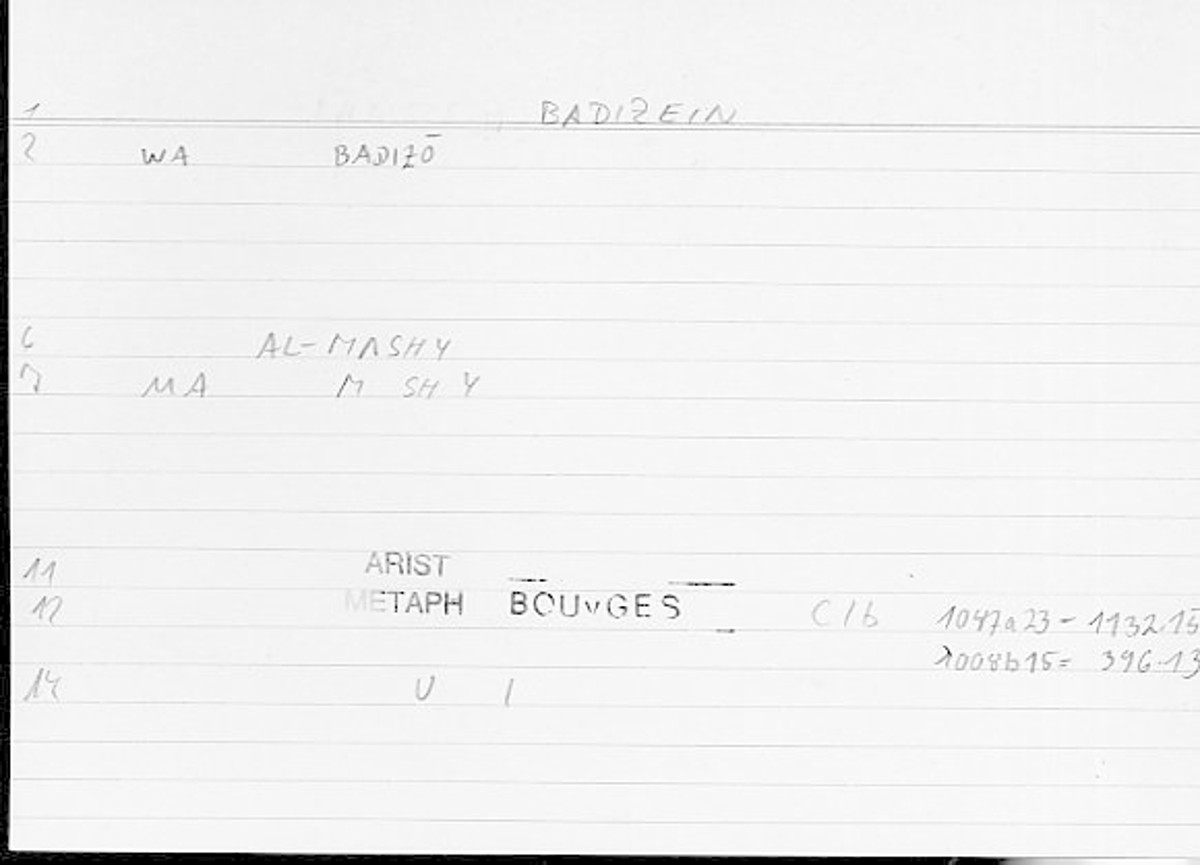 1 BADIZEIN
2 WA BADIZŌ
6 AL-MASHY
7 MA M SHY
11 ARIST
12 METAPH BOUYGES C/b 1047a23 = 1132.15
1008b15 = 396.13
14 U I